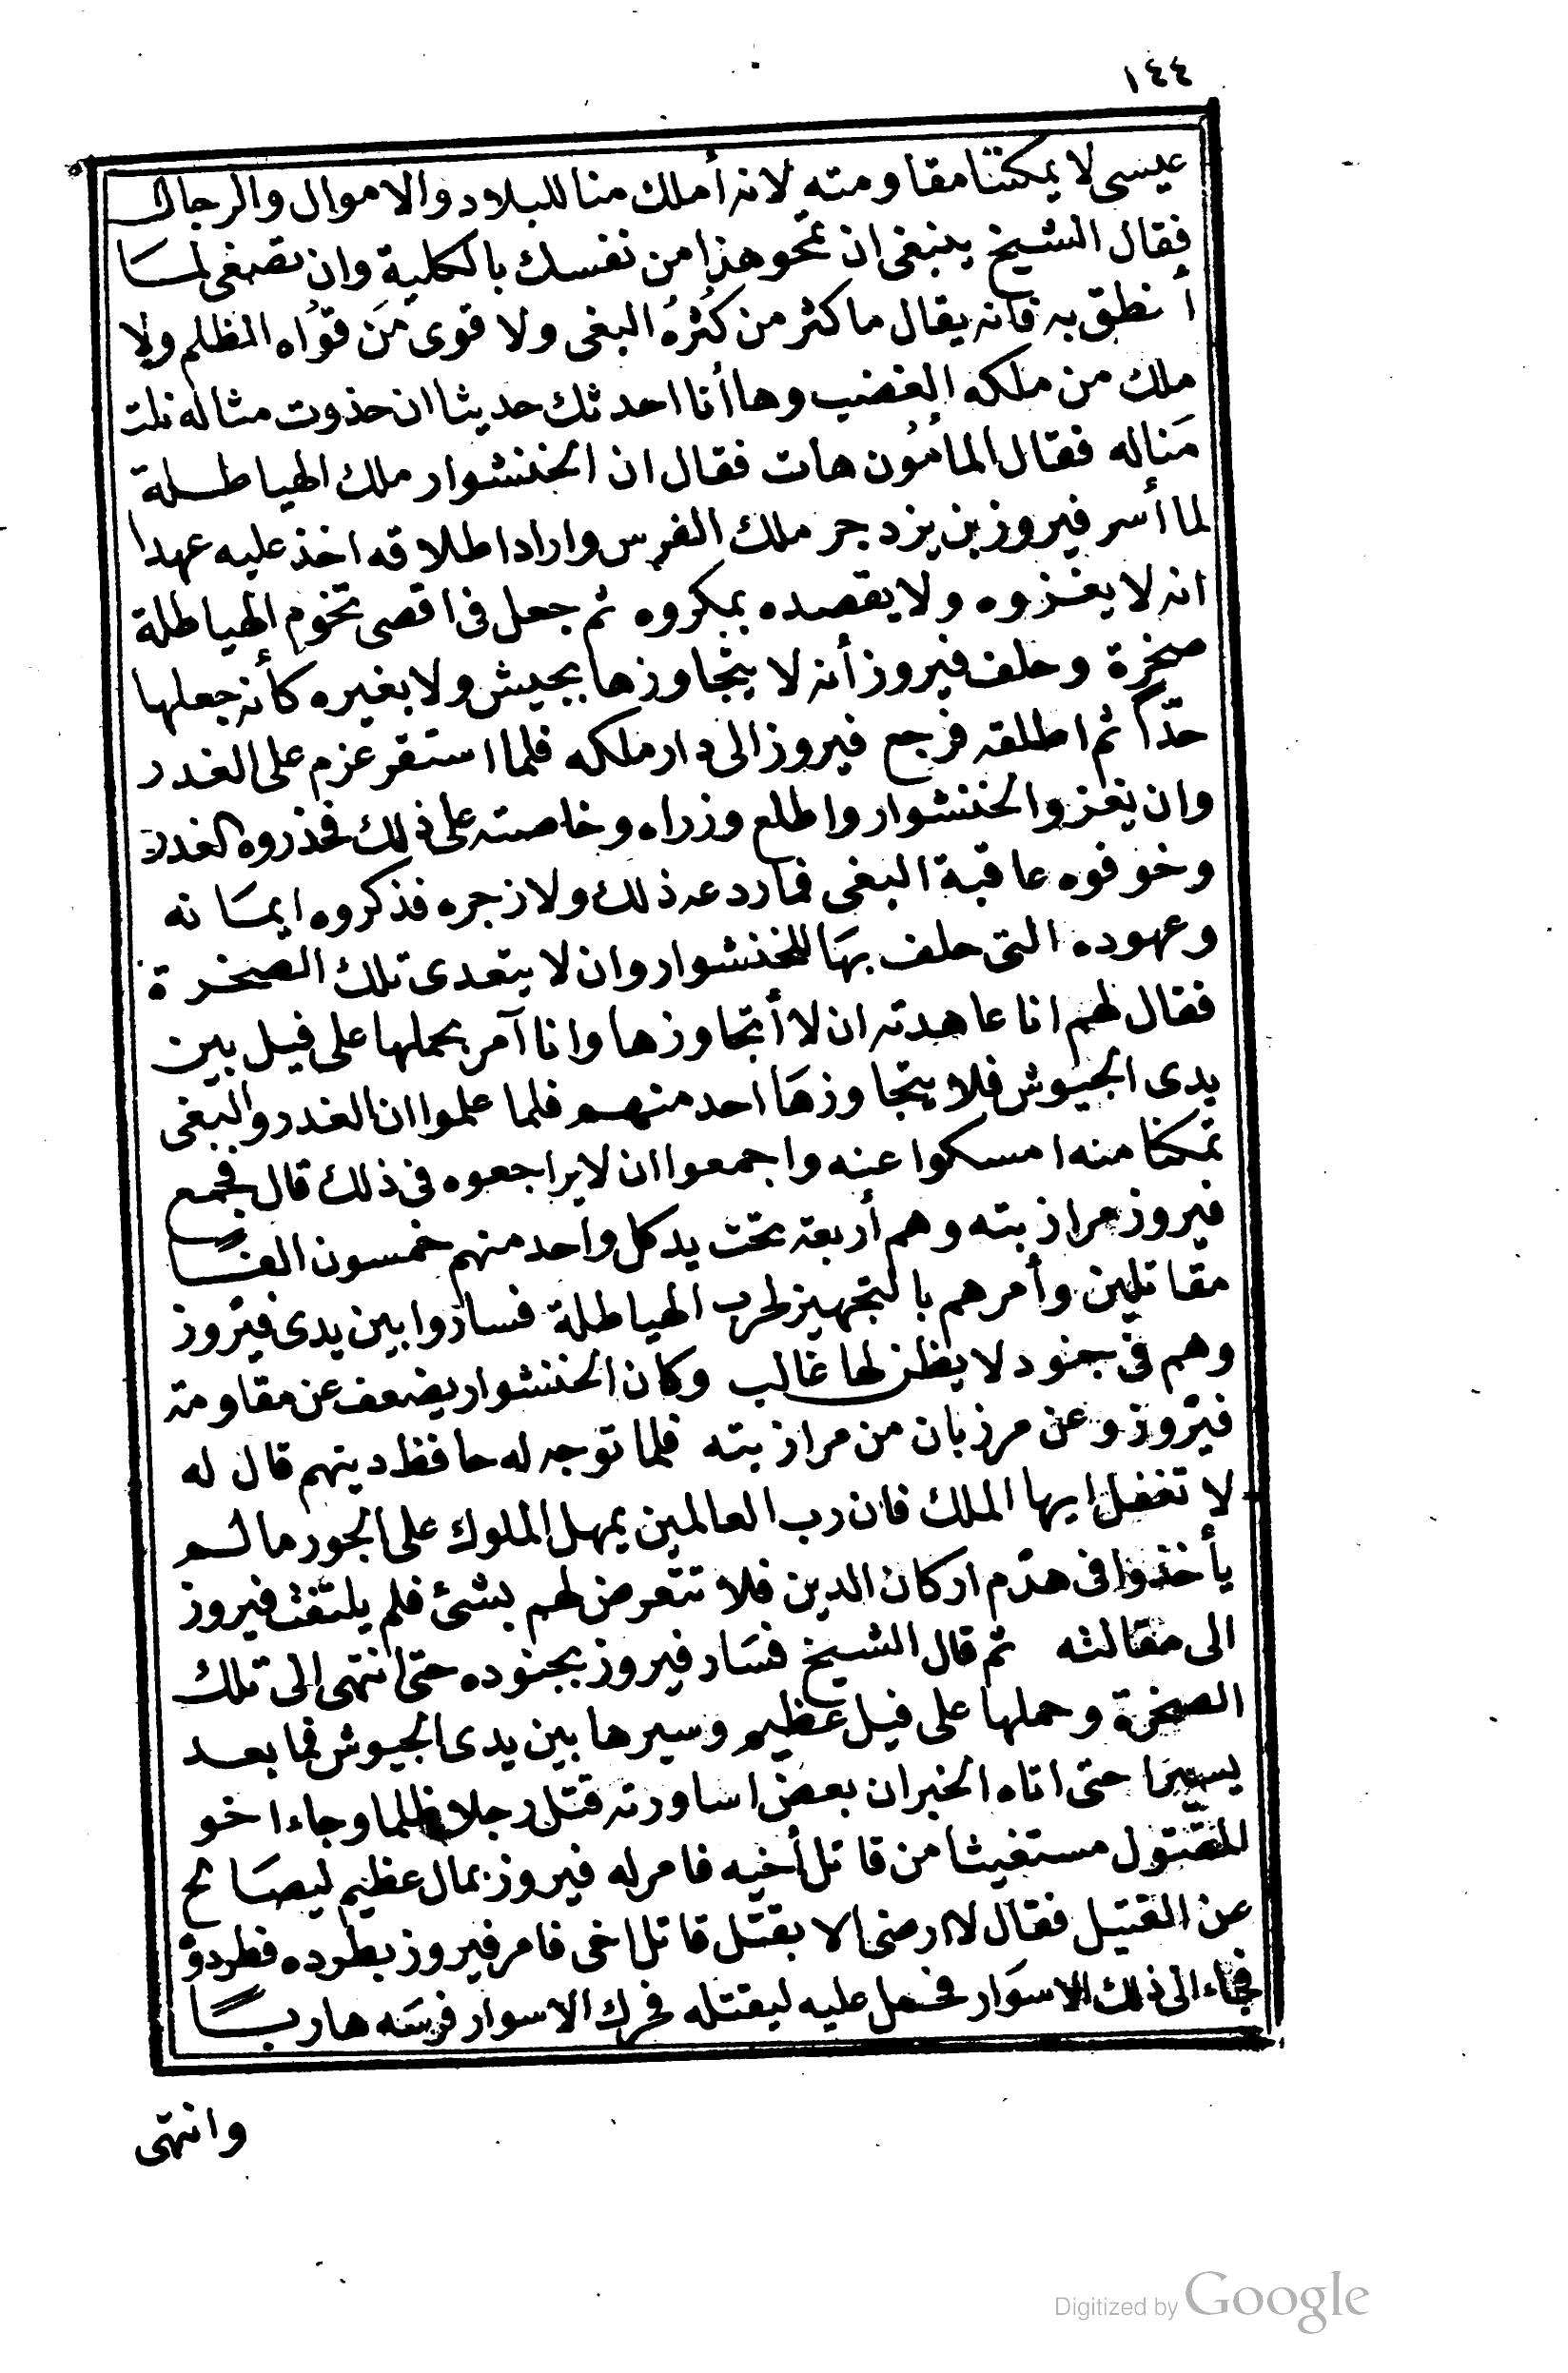 ١٤٤
عيسى لا يمكننا مقاومته لانه أملك منا للبلاد والاموال والرجال
فقال الشيخ ينبغى ان تمحو هذا من نفسك بالكلية وان تصغى لما
أنطق به فانه يقال ما كثر من كُثرهُ البغى ولا قوى مَن قوّاه الظلم ولا
ملك من ملكه الغضب وها أنا احدثك حديثا ان حذوت مثاله نلت
مَناله فقال المأمُون هات فقال ان الخنشوار ملك الهياطلة
لما أسر فيروز بن يزدجر ملك الفرس واراد اطلاقه اخذ عليه عهدا
انه لا يغزوه ولا يقصده بمكروه ثم جعل فى اقصى تخوم الهياطلة
صخرة وحلف فيروز أنه لا يتجاوزها بجيش ولا بغيره كأنه جعلها
حدّا ثم اطلقه فرجع فيروز الى دار ملكه فلما استقر عزم على الغدر
وان يغزو الخنشوار واطلع وزراه وخاصته على ذلك فحذروه الغدر
وخوفوه عاقبة البغى فما ردعه ذلك ولا زجره فذكروه ايمَانه
وعهوده التى حلف بهَا للخنشوار وان لا يتعدى تلك الصخرة
فقال لهم انا عاهدته ان لا أتجاوزها وانا آمر بحملها على فيل بين
يدى الجيوش فلا يتجاوزهَا احد منهم فلما علموا ان الغدر والبغى
تمكنا منه امسكوا عنه واجمعوا ان لا يراجعوه فى ذلك قال فجمع
فيروز مرازبته وهم أربعة تحت يد كل واحد منهم خمسون الفًا
مقاتلين وأمرهم بالتجهيز لحرب الهياطلة فساروا بين يدى فيروز
وهم فى جنود لا يظن لها غالب وكان الخنشوار يضعف عن مقاومة
فيروز وعن مرزبان من مرازبته فلما توجه له حافظ دينهم قال له
لا تغفل ايها الملك فان رب العالمين يمهل الملوك على الجور ما لم
يأخذوا فى هدم اركان الدين فلا تتعرض لهم بشئ فلم يلتفت فيروز
الى مقالته ثم قال الشيخ فسَار فيروز بجنوده حتى انتهى الى تلك
الصخرة وحملها على فيل عظيم وسيرها بين يدى الجيوش فما بعد
يسيرا حتى اتاه الخبر ان بعض اساورته قتل رجلا ظلما وجاء اخو
للمقتول مستغيثا من قاتل أخيه فامر له فيروز بمال عظيم ليصَالح
عن القتيل فقال لا ارضى الا بقتل قاتل اخى فامر فيروز بطرده فطردوه
فجاء الى ذلك الاسوَار فحمل عليه ليقتله فحرك الاسوار فرسَه هاربًا
وانتهى
Digitized by Google